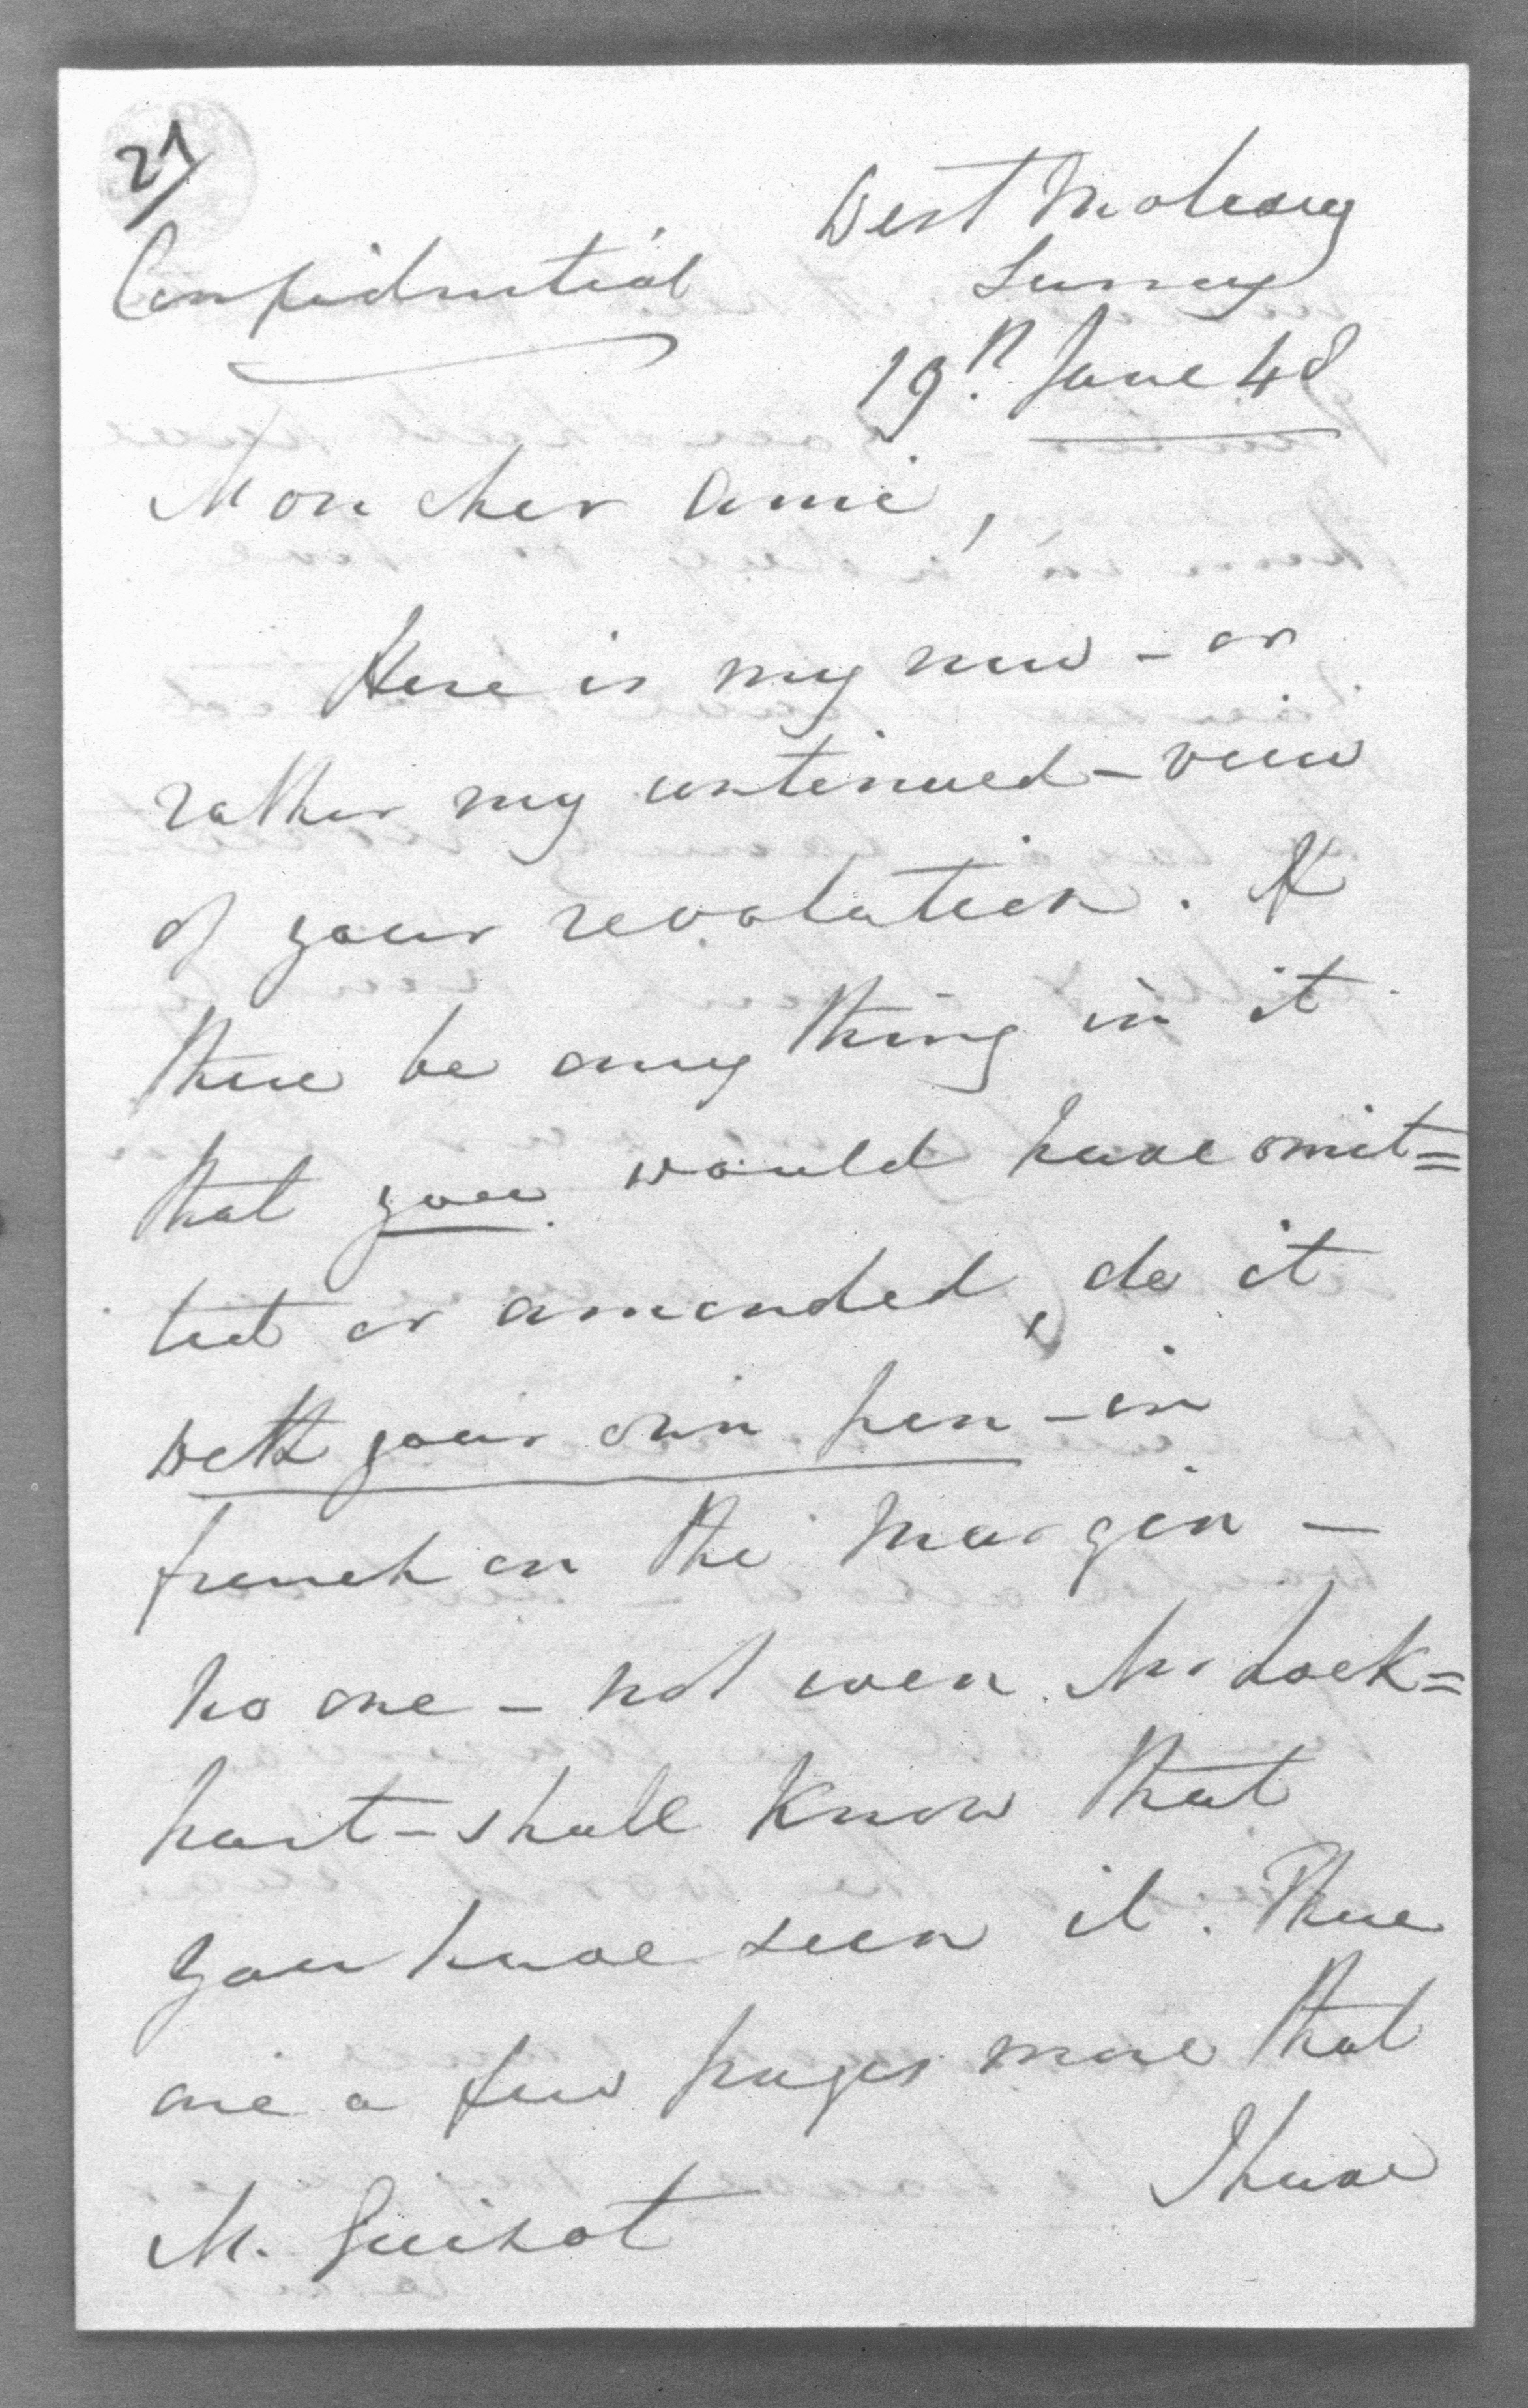 21
West Molesey
Confidential
Surrey
19th June 48
Mon cher ami,
Here is my new - or
rather my continued - view
of your revolution. If
there be any thing in it
that you would have omit=
ted or amended, do it
with your own pen - in
french on the margin -
No one - not even Mr Lock=
hart - shall know that
you have seen it. There
are a few pages more that
I have
M. Guizot